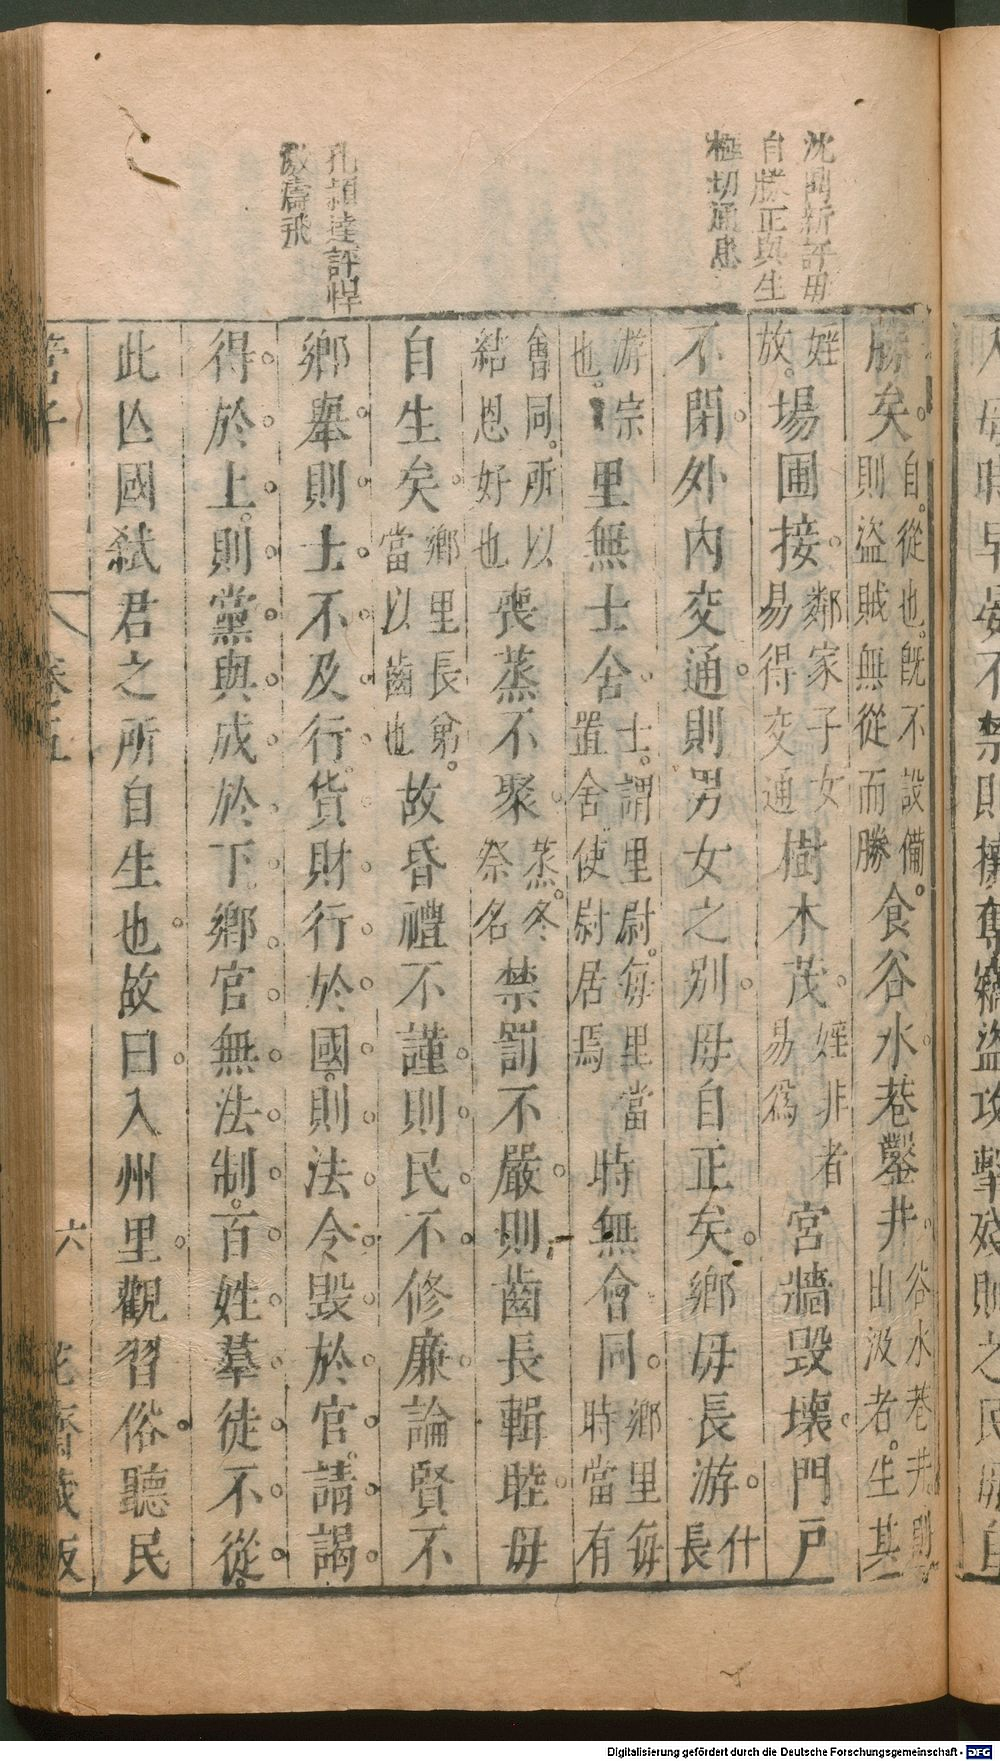 沈鼎新評毋
自勝正與生
極切通患
孔穎達評悍
激濤飛
勝矣。自從也。既不設備。則盜賊無從而勝食谷水巷鑿井谷水巷井則出汲者。生其
婬放。場圃接鄰家子女易得交通樹木茂婬非者易為宮牆毀壞門戶
不閉外內交通則男女之別毋自正矣鄉毋長游什長
游宗也。里無士舍士。謂里尉。每里當置舍使尉居焉時無會同鄉里每時當有
會同。所以結恩好也喪蒸不聚蒸。冬祭名禁罰不嚴則齒長輯睦毋
自生矣鄉里長弟。當以齒也故昏禮不謹則民不修廉論賢不
鄉舉則士不及行。貨財行於國。則法令毀於官。請謁
得於上。則黨與成於下。鄉官無法制。百姓羣徒不從。
此亾國弒君之所自生也故曰入州里觀習俗聽民
管子 卷五 六 花齋藏板
Digitalisierung gefördert durch die Deutsche Forschungsgemeinschaft - DFG